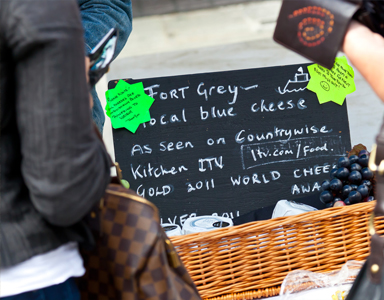 FORT Grey
local blue cheese
As seen on Countrywise
Kitchen ITV itv.com/food.
GOLD 2011 WORLD CHEE
AWA
LVER 2011